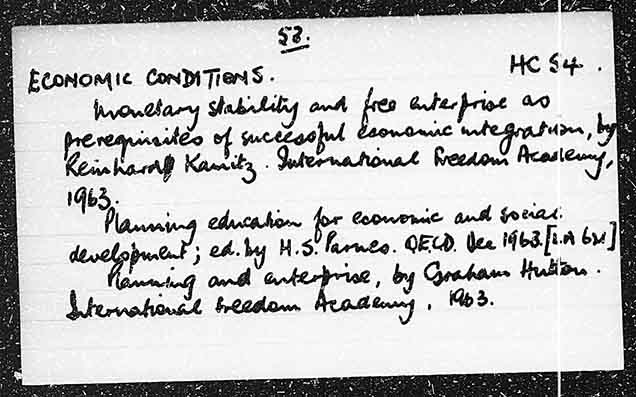 58.
ECONOMIC CONDITIONS. HC 54.
Monetary stability and free enterprise as
prerequisites of successful economic integration, by
Reinhard Kamitz. International Freedom Academy,
1963.
Planning education for economic and social
development; ed. by H.S. Parnes. OECD. Dec 1963.
Planning and enterprise, by Graham Hutton.
International Freedom Academy, 1963.